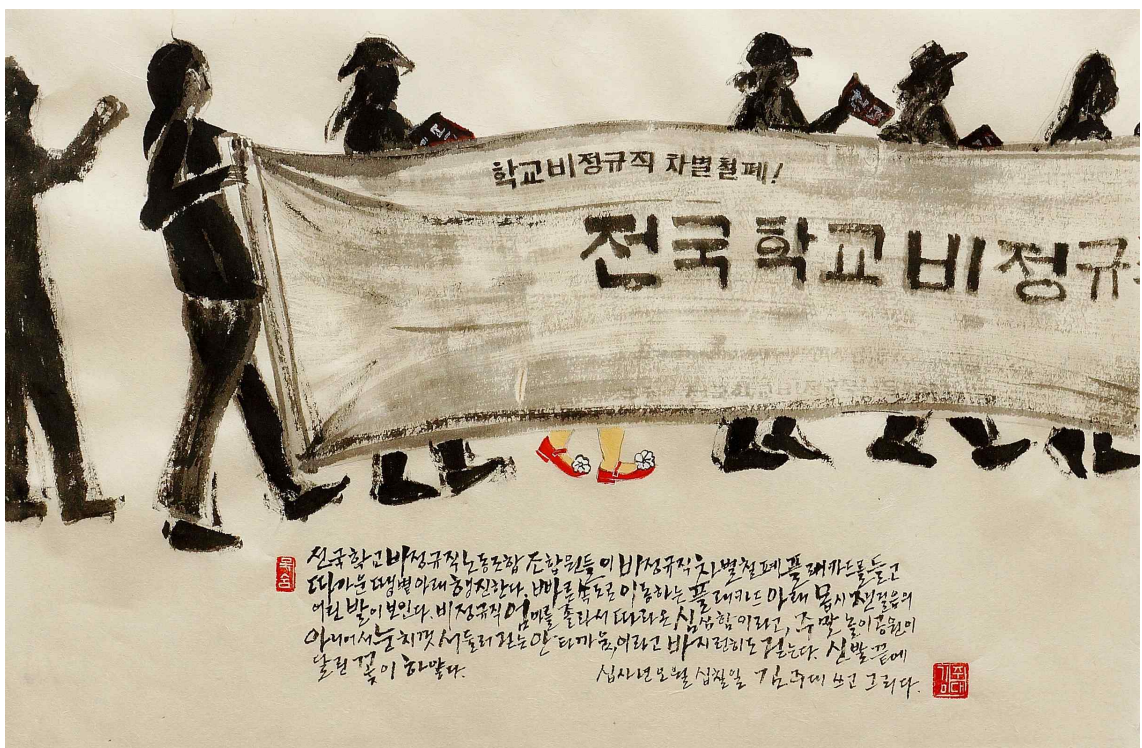 학교비정규직 차별철폐!
전국학교비정규
전국학교비정규직노동조합 조합원들이 비정규직차별철폐 플래카드를 들고
따가운 땡볕 아래 행진한다. 빠른 속도로 이동하는 플래카드 아래 몹시 잰걸음의
어린 발이 보인다. 비정규직 엄마를 졸라서 따라온 심심함이라고, 주말 놀이공원이
아니어서 눈치껏 서둘러 걷는 안타까움이라고 바지런히도 걷는다. 신발 끝에
달린 꽃이 하얗다.
십사년 오월 십칠일 김주대 쓰고 그리다.
김주대